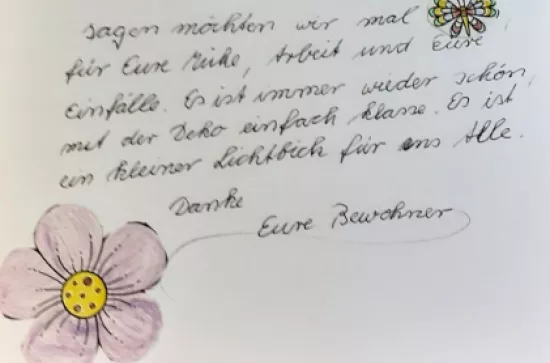 sagen möchten wir mal
für Eure Mühe, Arbeit und Eure
Einfälle. Es ist immer wieder schön,
mit der Deko einfach klasse. Es ist
ein kleiner Lichtblich für uns Alle.
Danke
Eure Bewohner